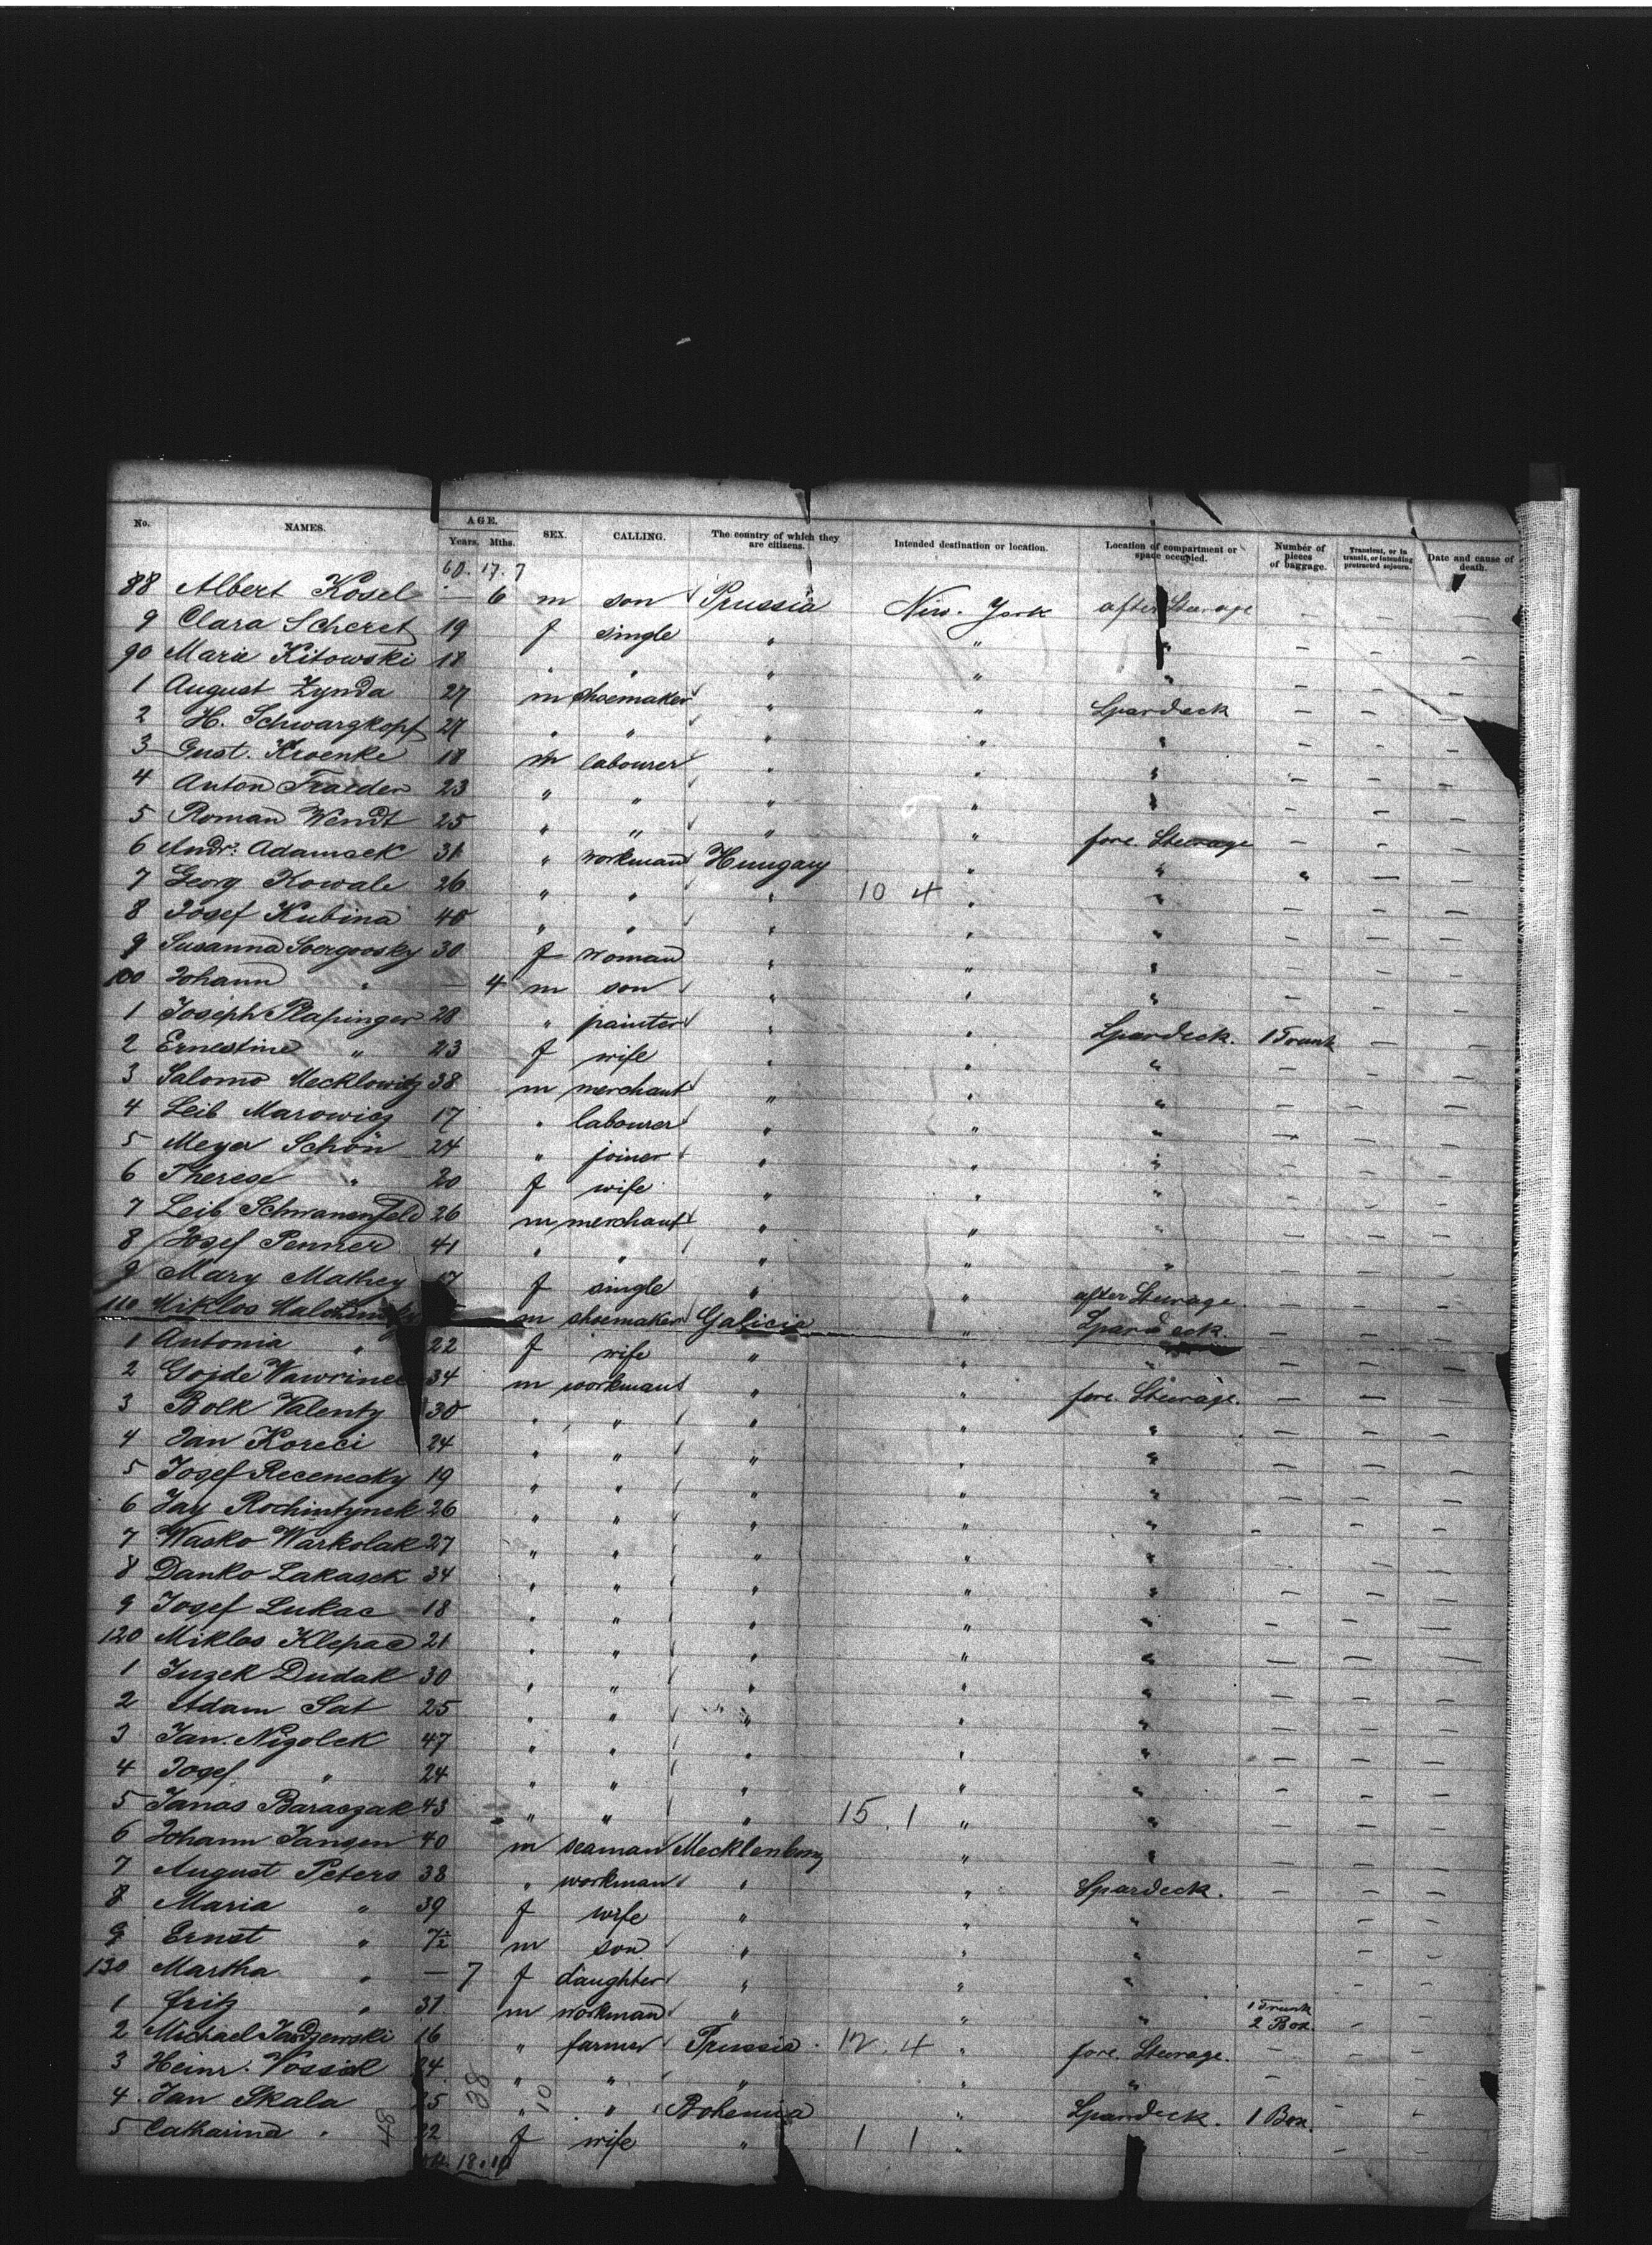 No. NAMES. AGE. Years. Mths. SEX. CALLING. The country of which they are citizens. Intended destination or location. Location of compartment or space occupied. Number of pieces of baggage. Transient, or in transit, or intending protracted sojourn. Date and cause of death.
60. 17. 7
88 Albert Kosel — 6 m son Prussia New-York after Steerage — — —
9 Clara Scheret 19 f single " " " — — —
90 Marie Kitowski 18 " " " " " — — —
1 August Zynda 27 m shoemaker " " Spardeck — — —
2 H. Schwarzkopf 27 " " " " " — — —
3 Gust. Kroenke 18 m labourer " " " — — —
4 Anton Traeder 23 " " " " " — — —
5 Roman Wendt 25 " " " " fore. Steerage — — —
6 Andr. Adamsek 31 " workman Hungary " " " — —
7 Georg Kowale 26 " " " 10 4 " " — — —
8 Josef Kubina 40 " " " " " — — —
9 Susanna 30 f woman " " " — — —
100 Johann " — 4 m son " " " — — —
1 Joseph Plapinger 28 " painter " " Spardeck. 1 Trunk — —
2 Ernestine " 23 f wife " " " — —
3 Salomo Mecklowitz 38 m merchant " " " — — —
4 Leib Marowicz 17 " labourer " " " — — —
5 Meyer Schön 24 " joiner " " " — — —
6 Therese " 20 f wife " " " — — —
7 Leib Schwanenfeld 26 m merchant " " " — — —
8 Josef Penner 41 " " " " " — — —
9 Mary Mathey 17 f single " " after Steerage — — —
110 Miklos m shoemaker Galicia " Spardeck. — — —
1 Antonia " 22 f wife " " " — — —
2 Gojde Wawrinec 34 m workman " " fore. Steerage. — — —
3 Bolk Valenty 30 " " " " " — — —
4 Jan Koreci 24 " " " " " — — —
5 Josef Recenecky 19 " " " " " — — —
6 Jay Rochintynek 26 " " " " " — — —
7 Wasko Warkolak 27 " " " " " — — —
8 Danko Lakasek 34 " " " " " — — —
9 Josef Lukac 18 " " " " " — — —
120 Miklos Klepac 21 " " " " " — — —
1 Juzek Dudak 30 " " " " " — — —
2 Adam Sat 25 " " " " " — — —
3 Jan. Nigolek 47 " " " " " — — —
4 Josef " 24 " " " " " — — —
5 Janos Baraczak 43 " " " 15. 1 " " — — —
6 Johann Jansen 40 m seaman Mecklenburg " " — — —
7 August Peters 38 " workman " " Spardeck. — —
8 Maria " 39 f wife " " " — —
9 Ernst " 7½ m son " " " — —
130 Martha " — 7 f daughter " " " — —
1 Fritz " 31 m workman " " " 1 Trunk 2 Box. — —
2 Michael Jadzewski 16 " farmer Prussia. 12. 4 " fore. Steerage. — — —
3 Heinr. Vossick 24 " " " " " — — —
4 Jan Skala 25 " " Bohemia " Spardeck. 1 Box. — —
5 Catharina " 22 f wife " 1 1 " — —
48 38 10
18. 10